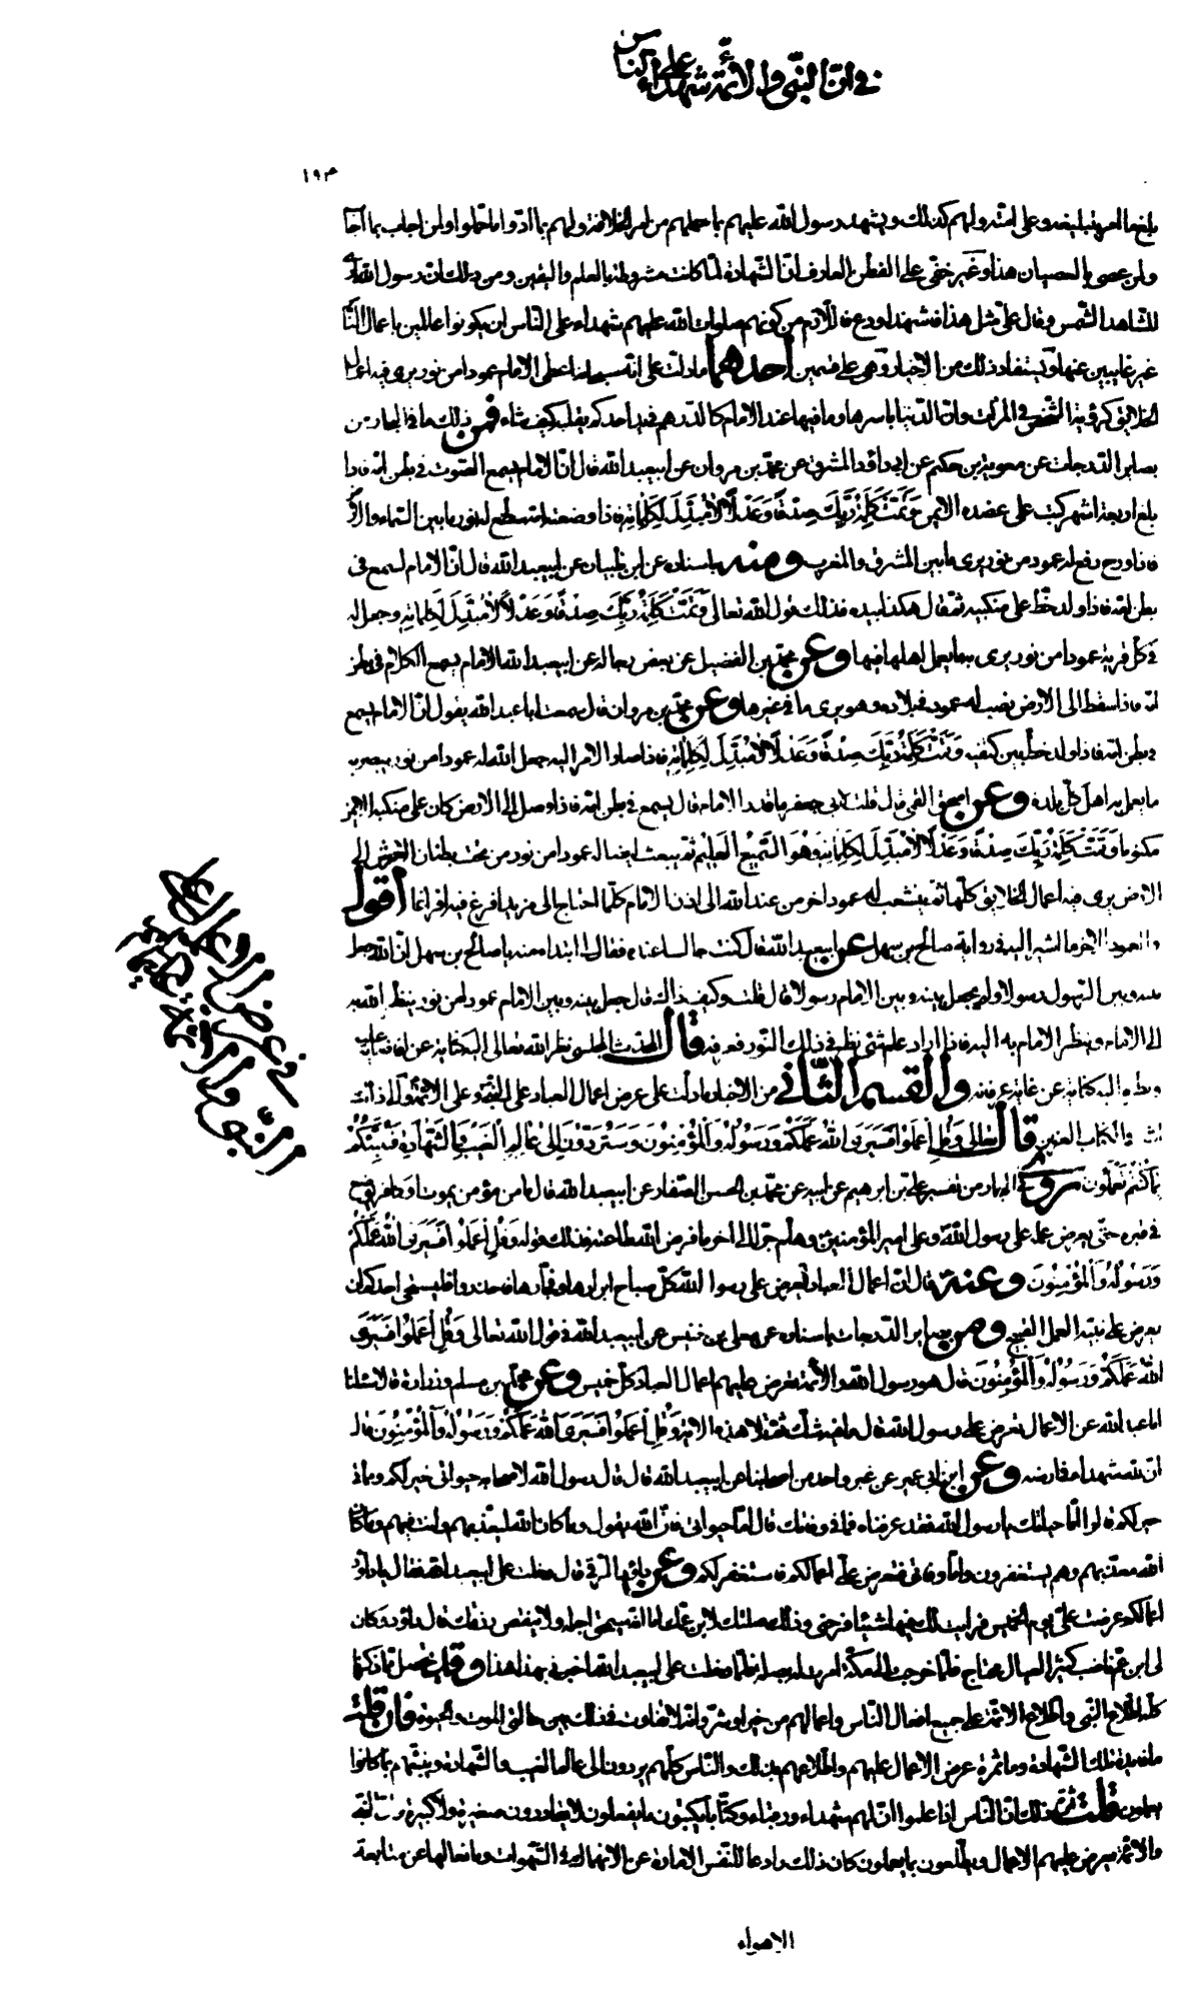 في انّ النّبي والائمّة شهداء على النّاس
١٩٣
ما لم يبلغه وعلى امّته ولهم كذلك ويشهد رسول الله عليهم بما حملهم من امر الخلافة ولهم بما ادّوا ما تحمّلوا ولمن اجاب بما اجاب
ولمن عصى بالعصيان هذا وغير خفىّ على الفطن العارف انّ الشّهادة لمّا كانت مشروطة بالعلم واليقين ومن ذلك انّ رسول الله
للشاهد الشّمس وقال على مثل هذا فاشهد او دع فاللّازم من كونهم صلوات الله عليهم شهداء على النّاس ان يكونوا عالمين باعمال النّاس
غير غايبين عنها ويستفاد ذلك من الاخبار وهى على قسمين احدهما ما دلّت على انّه سبحانه اعطى الامام عمودا من نور يرى فيه اعمال
الخلايق كرؤية الشّخص في المرآت وانّ الدّنيا باسرها وما فيها عند الامام كالدّرهم في يد احدكم يقلبه كيف شاء فمن ذلك ما في البحار من
بصاير الدّرجات عن معوية بن حكيم عن ابى داود المسترق عن محمّد بن مروان عن ابيعبد الله قال انّ الامام يسمع الصّوت في بطن امّه فاذا
بلغ اربعة اشهر كتب على عضده الايمن وَتَمَّتْ كَلِمَةُ رَبِّكَ صِدْقًا وَعَدْلًا لا مُبَدِّلَ لِكَلِماتِهِ فاذا وضعته سطع له نور ما بين السّماء والارض
فاذا درج رفع له عمود من نور يرى ما بين المشرق والمغرب ومنه باسناده عن ابن ظبيان عن ابيعبد الله قال انّ الامام ليسمع في
بطن امّه فاذا ولد خطّ على منكبيه ثمّ قال هكذا بيده فذلك قول الله تعالى وَتَمَّتْ كَلِمَةُ رَبِّكَ صِدْقًا وَعَدْلًا لا مُبَدِّلَ لِكَلِماتِهِ وجعل له
في كلّ قرية عمودا من نور يرى به ما يعمل اهلها فيها وعن محمّد بن الفضيل عن بعض رجاله عن ابيعبد الله الامام يسمع الكلام في بطن
امّه فاذا سقط الى الارض نصب له عمود في بلاده وهو يرى ما في غيرها وعن محمّد بن مروان قال سمعت ابا عبد الله يقول انّ الامام يسمع
في بطن امّه فاذا ولد خطّ بين كتفيه وَتَمَّتْ كَلِمَةُ رَبِّكَ صِدْقًا وَعَدْلًا لا مُبَدِّلَ لِكَلِماتِهِ فاذا صار الامر اليه جعل الله له عمودا من نور يبصر به
ما يعمل به اهل كلّ بلدة وعن اسحق القمى قال قلت لابى جعفر ما قدر الامام قال يسمع في بطن امّه فاذا وصل الى الارض كان على منكبه الايمن
مكتوبا وَتَمَّتْ كَلِمَةُ رَبِّكَ صِدْقًا وَعَدْلًا لا مُبَدِّلَ لِكَلِماتِهِ وَهُوَ السَّمِيعُ الْعَلِيمُ ثمّ يبعث ايضا له عمودا من نور من تحت بطنان العرش الى
الارض يرى فيه اعمال الخلايق كلّها ثمّ يتشعب له عمود اخر من عند الله الى اذن الامام كلّما احتاج الى مزيد افرغ فيه افراغا اقول
والعمود الاخر ما اشير اليه في رواية صالح بن سهل عن ابيعبد الله قال كنت جالسا عنده فقال ابتداء منه يا صالح بن سهل انّ الله جعل
بينه وبين الرّسول رسولا ولم يجعل بينه وبين الامام رسولا قال قلت وكيف ذاك قال جعل بينه وبين الامام عمودا من نور ينظر الله به
الى الامام وينظر الامام به اليه فاذا اراد علم شىء نظر في ذلك النّور فعرفه قال المحدّث المجلسى نظر الله تعالى اليه كناية عن افاضاته عليه
ونظره اليه كناية عن غاية عرفانه والقسم الثّاني من الاخبار ما دلّت على عرض اعمال العباد على النّبى وعلى الائمّة
في الكتاب العزيز قال تعالى وَقُلِ اعْمَلُوا فَسَيَرَى اللهُ عَمَلَكُمْ وَرَسُولُهُ وَالْمُؤْمِنُونَ وَسَتُرَدُّونَ إِلى عالِمِ الْغَيْبِ وَالشَّهادَةِ فَيُنَبِّئُكُمْ
بِما كُنْتُمْ تَعْمَلُونَ روى في البحار من تفسير علىّ بن ابرهيم عن ابيه عن محمّد بن الحسن الصّفار عن ابيعبد الله قال ما من مؤمن يموت او كافر يوضع
في قبره حتّى يعرض عمله على رسول الله وعلى امير المؤمنين وهلمّ جرّا الى اخر ما فرض الله طاعته فذلك قوله وَقُلِ اعْمَلُوا فَسَيَرَى اللهُ عَمَلَكُمْ
وَرَسُولُهُ وَالْمُؤْمِنُونَ وعنه قال انّ اعمال العباد تعرض على رسول الله كلّ صباح ابرارها وفجّارها فاحذروا فليستحى احدكم ان
يعرض على نبيّه العمل القبيح ومن بصاير الدّرجات باسناده عن معلى بن خنيس عن ابيعبد الله في قول الله تعالى وَقُلِ اعْمَلُوا فَسَيَرَى
اللهُ عَمَلَكُمْ وَرَسُولُهُ وَالْمُؤْمِنُونَ قال هو رسول الله والائمّة تعرض عليهم اعمال العباد كلّ خميس وعن محمّد بن مسلم وزرارة قالا سئلنا
ابا عبد الله عن الاعمال تعرض على رسول الله قال ما فيه شكّ ثمّ تلا هذه الاية وَقُلِ اعْمَلُوا فَسَيَرَى اللهُ عَمَلَكُمْ وَرَسُولُهُ وَالْمُؤْمِنُونَ قال
انّ لله شهداء في ارضه وعن ابن ابى عمير عن غير واحد من اصحابنا عن ابيعبد الله قال قال رسول الله لاصحابه حيوتى خير لكم ومماتى
خير لكم قالوا امّا حياتك يا رسول الله فقد عرفناه فما في وفاتك قال امّا حيوتى فانّ الله يقول وما كان الله ليعذّبهم وانت فيهم وما كان
الله معذّبهم وهم يستغفرون وامّا وفاتى فتعرض علىّ اعمالكم فاستغفر لكم وعن داود الرّقى قال دخلت على ابيعبد الله فقال يا داود
اعمالكم عرضت علىّ يوم الخميس فرايت لك فيها شيئا فرّحنى وذلك صلتك لابن عمّك اما انّه سيمحى اجله ولا ينقص رزقك قال داود وكان
لى ابن عمّ ناصب كثير العيال محتاج فلمّا خرجت الى مكّة امرت له بصلة فلمّا دخلت على ابيعبد الله اخبرنى بهذا هذا وقد تحصّل ممّا ذكرنا
كلّه اطّلاع النّبى واطّلاع الائمّة على جميع افعال النّاس واعمالهم من خير او شرّ وانّه لا تفاوت في ذلك بين حالتى الموت والحيوة فان قلت
ما فايدة تلك الشّهادة وما ثمرة عرض الاعمال عليهم واطّلاعهم بذلك والنّاس كلّهم يردون الى عالم الغيب والشّهادة وينبّئهم بما كانوا
يعملون قلت ثمرة ذلك انّ النّاس اذا علموا انّ لهم شهداء ورقباء وكتّابا يكتبون ما يفعلون لا يغادرون صغيرة ولا كبيرة وانّ النّبى
والائمّة يعرض عليهم الاعمال ويطّلعون بما يعملون كان ذلك رادعا للنّفس الامارة عن الانهماك في الشّهوات ومانعا لها عن متابعة
الاهواء
في عرض الاعمال على
النّبىّ والائمّة عليهم